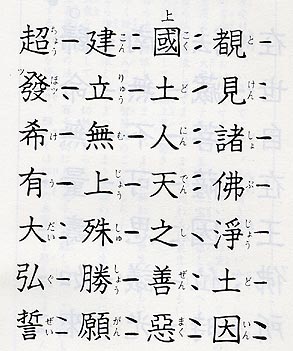 覩見諸佛淨土因
とけんしょぶじょうどいん
上
國土人天之善惡
こくどにんでんしぜんまく
建立無上殊勝願
こんりゅうむじょうしゅしょうがん
超發希有大弘誓
ちょうほッけうだいぐぜい
ッ